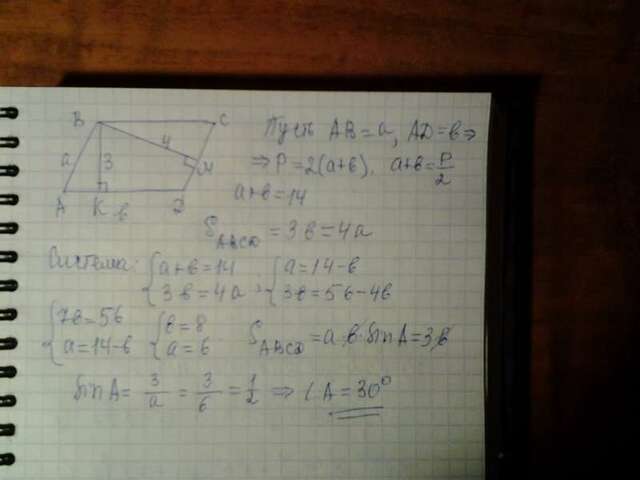 B C
a 3 4 M
A K в D
Пусть AB = a, AD = в ⇒
⇒ P = 2(a+в), a+в = P/2
a+в = 14
S ABCD = 3в = 4a
Система: { a+в = 14 3в = 4a ; { a = 14-в 3в = 56-4в
{ 7в = 56 a = 14-в { в = 8 a = 6 S ABCD = a·в·sin A = 3в
sin A = 3/a = 3/6 = 1/2 ⇒ ∠A = 30°